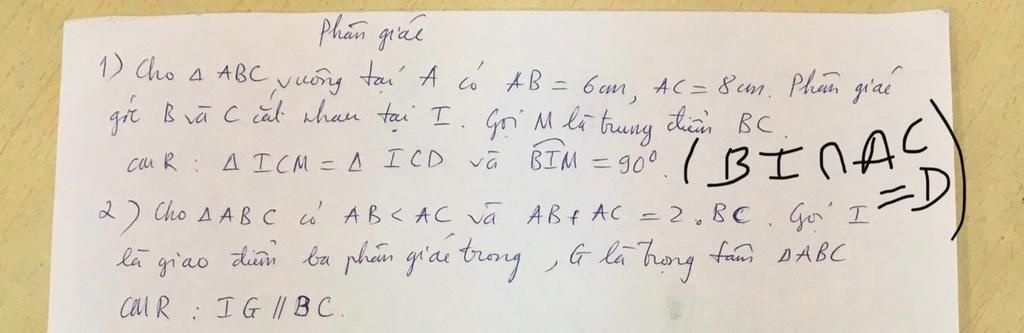 Phân giác
1) Cho Δ ABC vuông tại A có AB = 6cm, AC = 8cm. Phân giác
góc B và C cắt nhau tại I. Gọi M là trung điểm BC.
CMR : Δ ICM = Δ ICD và BIM = 90°. ( BI ∩ AC
= D )
2) Cho Δ ABC có AB < AC và AB + AC = 2.BC. Gọi I
là giao điểm ba phân giác trong, G là trọng tâm ΔABC
CMR : IG // BC.